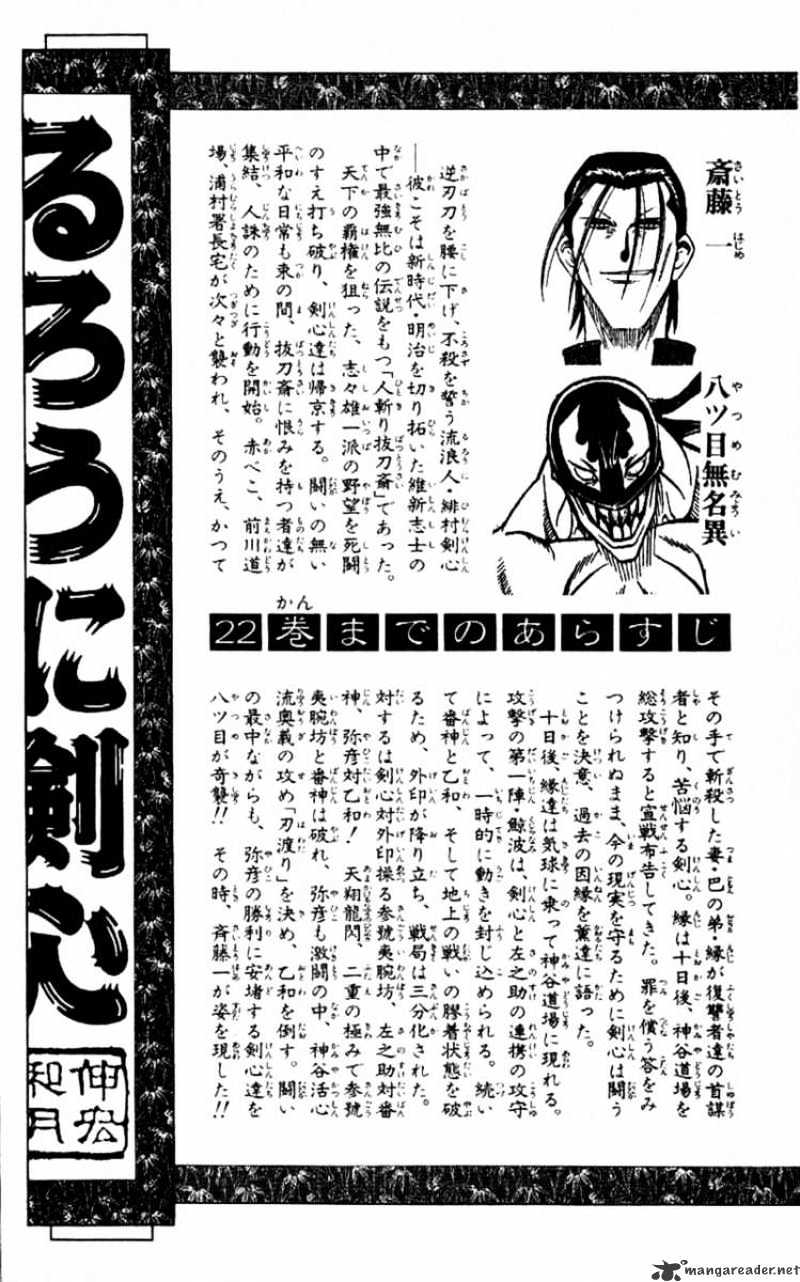 斎藤一
さいとうはじめ
八ツ目無名異
やつめむみょうい
22巻までのあらすじ
かん
逆刃刀を腰に下げ、不殺を誓う流浪人・緋村剣心
──彼こそは新時代・明治を切り拓いた維新志士の
中で最強無比の伝説をもつ「人斬り抜刀斎」であった。
天下の覇権を狙った、志々雄一派の野望を死闘
のすえ打ち破り、剣心達は帰京する。闘いの無い
平和な日常も束の間、抜刀斎に恨みを持つ者達が
集結、人誅のために行動を開始。赤べこ、前川道
場、浦村署長宅が次々と襲われ、そのうえ、かつて
その手で斬殺した妻・巴の弟・縁が復讐者達の首謀
者と知り、苦悩する剣心。縁は十日後、神谷道場を
総攻撃すると宣戦布告してきた。罪を償う答をみ
つけられぬまま、今の現実を守るために剣心は闘う
ことを決意、過去の因縁を薫達に語った。
十日後、縁達は気球に乗って神谷道場に現れる。
攻撃の第一陣・鯨波は、剣心と左之助の連携の攻守
によって、一時的に動きを封じ込められる。続い
て番神と乙和、そして地上の戦いの膠着状態を破
るため、外印が降り立ち、戦局は三分化された。
対するは剣心対外印操る参號夷腕坊、左之助対番
神、弥彦対乙和！天翔龍閃、二重の極みで参號
夷腕坊と番神は破れ、弥彦も激闘の中、神谷活心
流奥義の攻め「刃渡り」を決め、乙和を倒す。闘い
の最中ながらも、弥彦の勝利に安堵する剣心達を
八ツ目が奇襲!! その時、斉藤一が姿を現した!!
るろうに剣心
和月
伸宏
mangareader.net